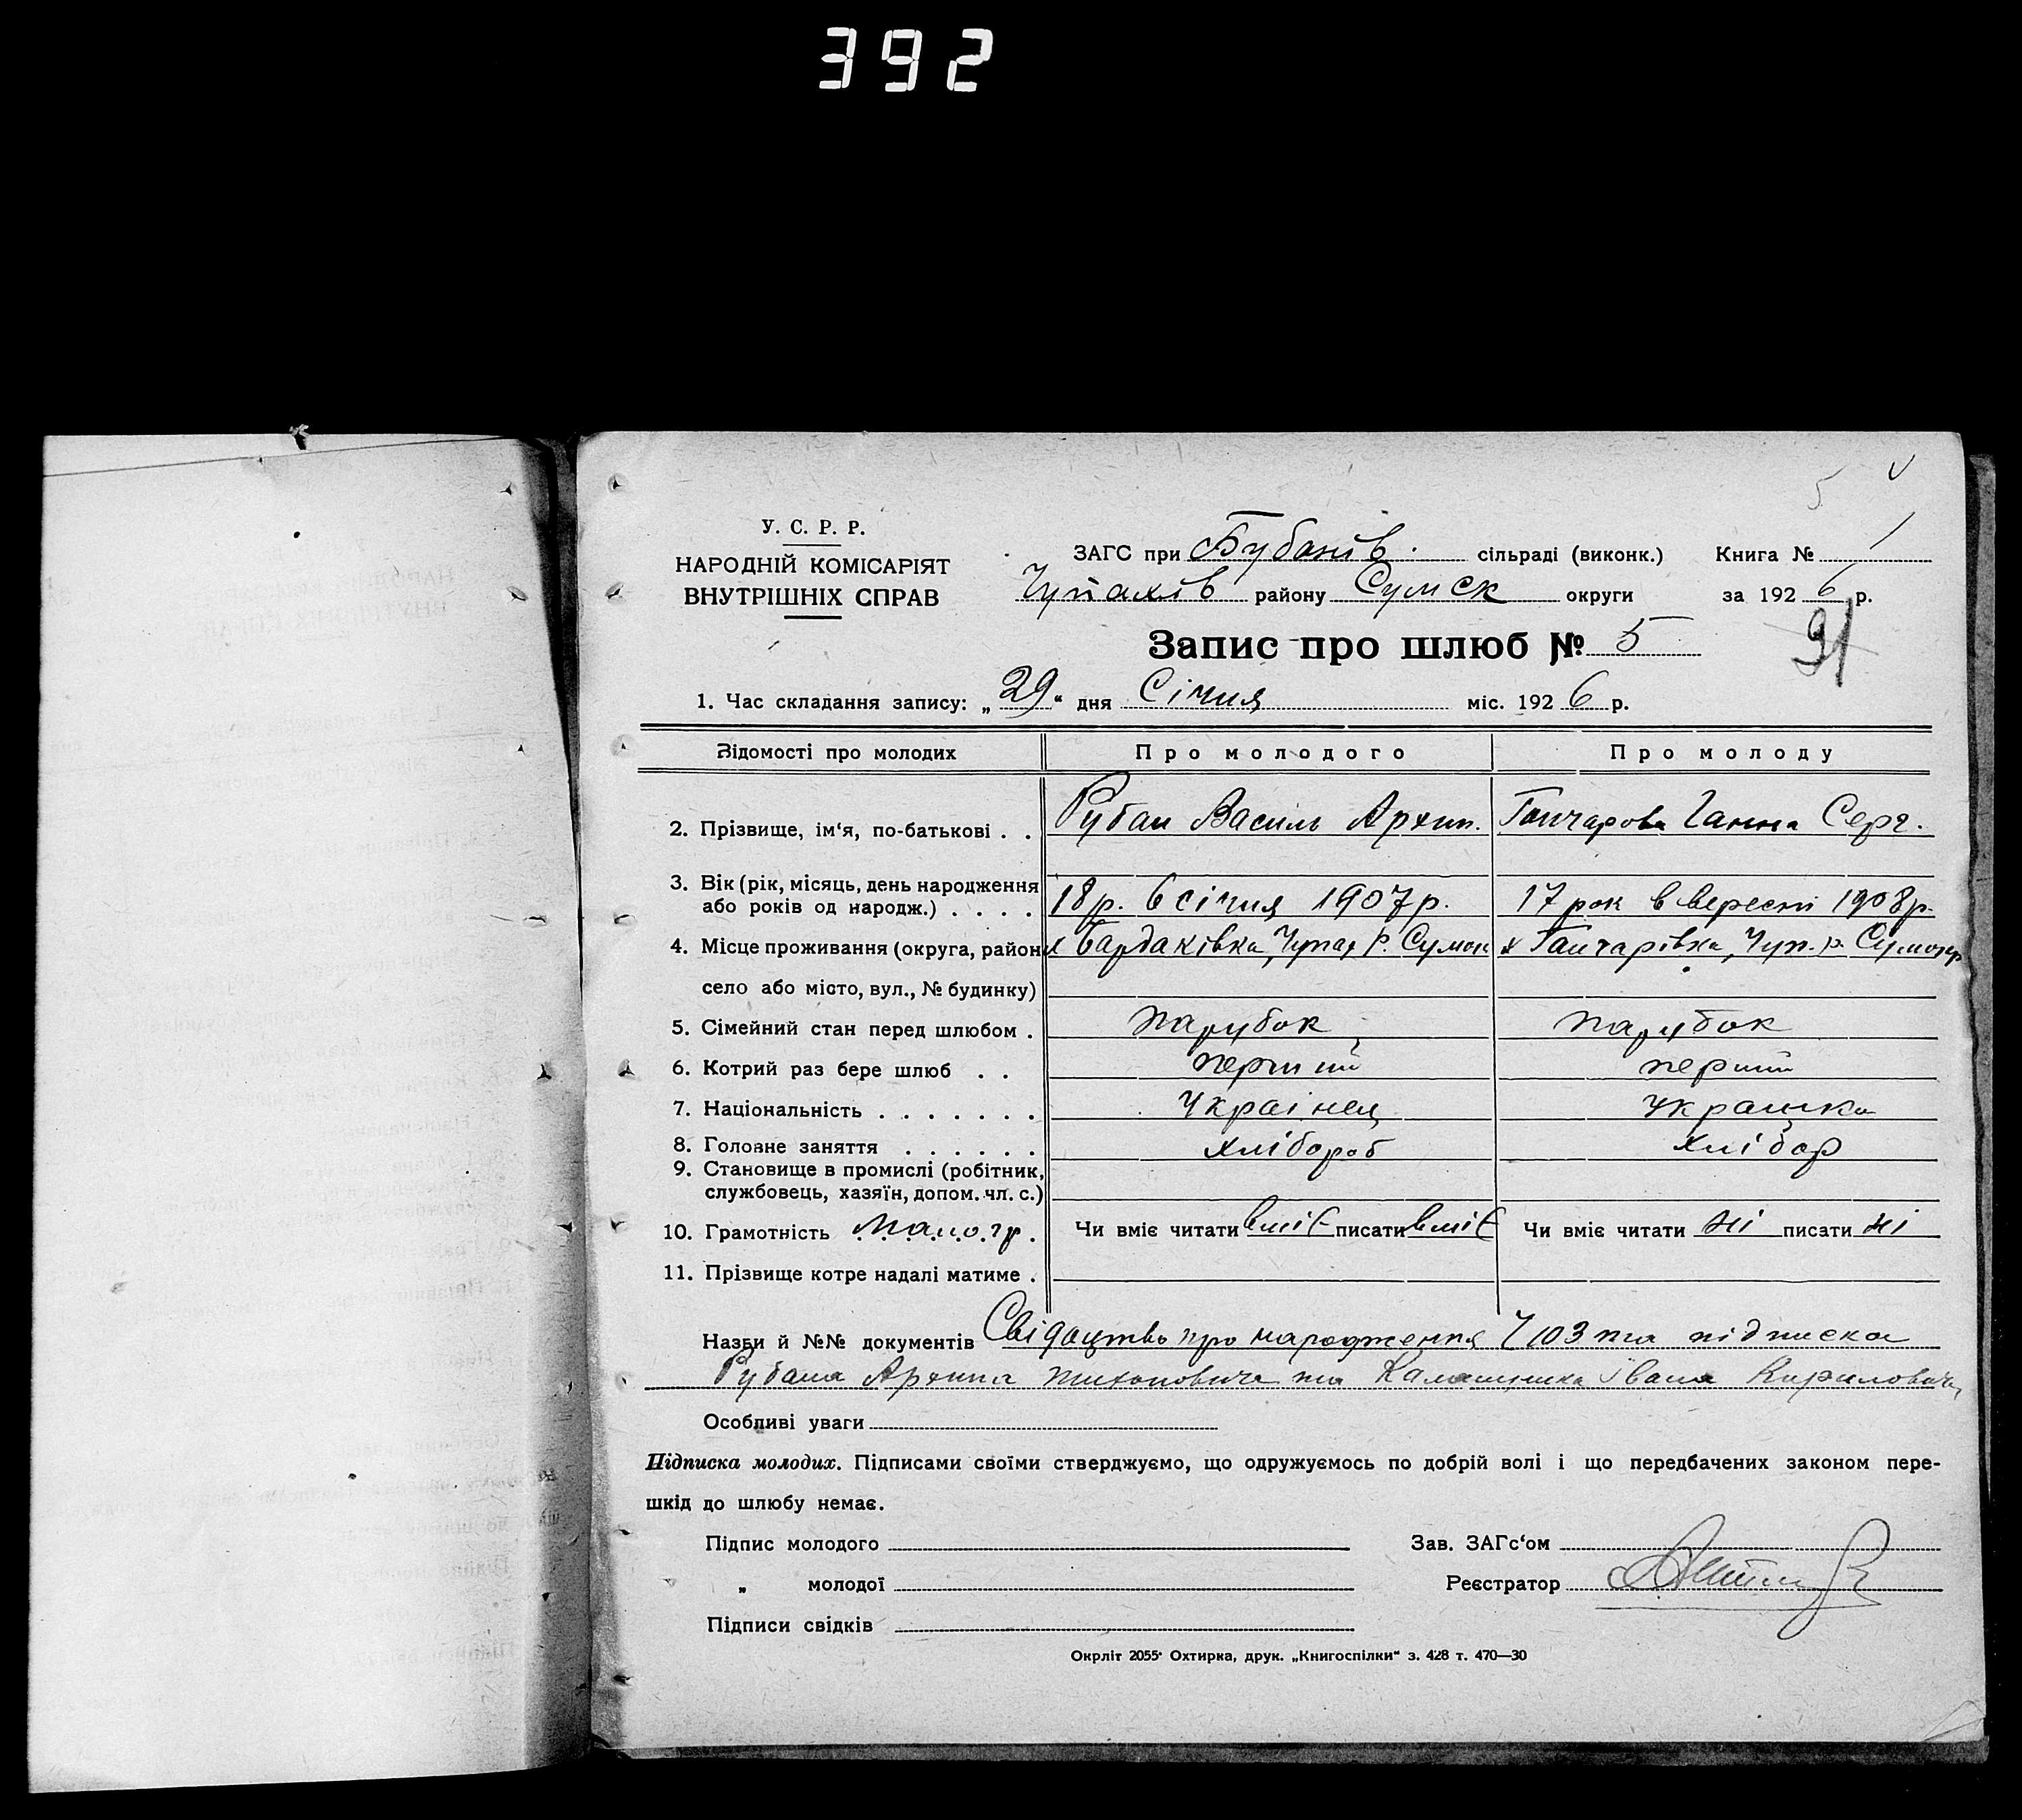 392
5 v
У. С. Р. Р.
НАРОДНІЙ КОМІСАРІЯТ
ВНУТРІШНІХ СПРАВ
ЗАГС при Бубанів. сільраді (виконк.) Книга № 1
Чупахів району Сумск округи за 1926 р.
Запис про шлюб № 5
91
1. Час складання запису: „29“ дня Січня міс. 1926 р.
Відомості про молодих Про молодого Про молоду
2. Прізвище, ім‘я, по-батькові . . Рубан Василь Архип. Гончарова Ганна Серг.
3. Вік (рік, місяць, день народження 18 р. 6 січня 1907 р. 17 рок в вересні 1908 р.
або років од народж.) . . . .
4. Місце проживання (округа, район х Бардаківка, Чупах р. Сумок х Гончарівка, Чуп. р. Сумокр
село або місто, вул., № будинку)
5. Сімейний стан перед шлюбом . парубок парубок
6. Котрий раз бере шлюб . . перший перший
7. Національність . . . . . . . Украінец Украінка
8. Головне заняття . . . . . . хлібороб хлібор
9. Становище в промислі (робітник,
службовець, хазяїн, допом. чл. с.)
10. Грамотність Малогр. Чи вміє читати вміє писати вміє Чи вміє читати ні писати ні
11. Прізвище котре надалі матиме .
Назви й №№ документів Свідоцтво про народження Ч 103 та підписка
Рубана Архипа Тихоновича та Калашника Івана Кириловича
Особливі уваги
Підписка молодих. Підписами своїми стверджуємо, що одружуємось по добрій волі і що передбачених законом пере-
шкід до шлюбу немає.
Підпис молодого Зав. ЗАГс‘ом
„ молодої Реєстратор
Підписи свідків
Окрліт 2055 Охтирка, друк. „Книгоспілки“ з. 428 т. 470—30